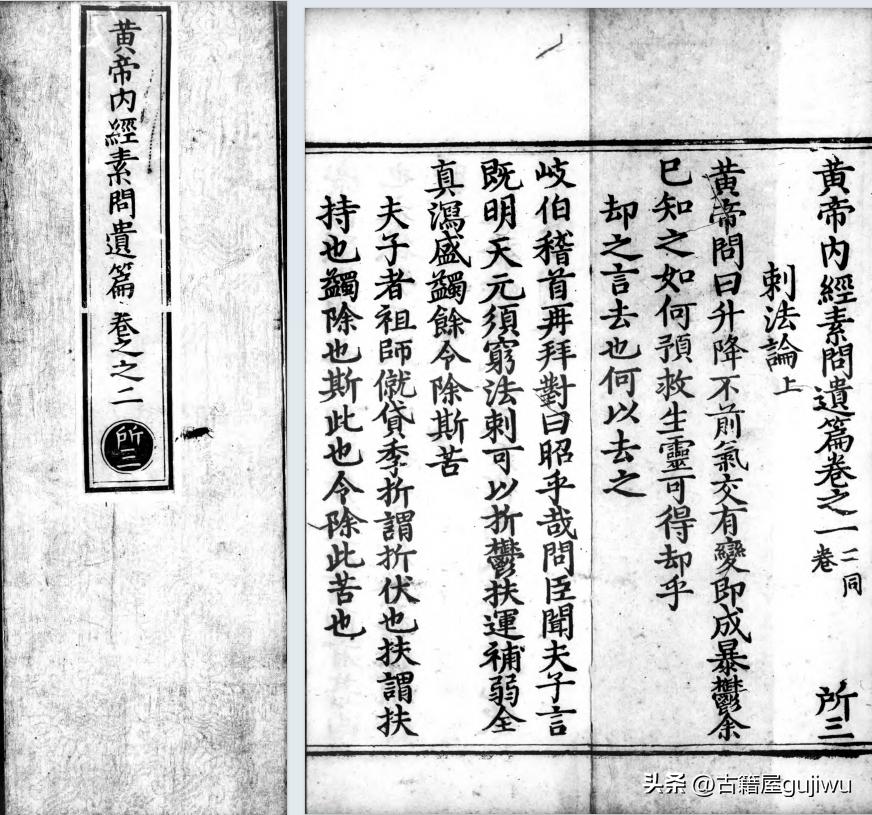 黄帝内經素問遺篇卷之二
所三
黄帝内經素問遺篇卷之一二同卷
所三
刺法論上
黄帝問曰升降不前氣交有變即成暴鬱余
巳知之如何預救生靈可得却乎
却之言去也何以去之
岐伯稽首再拜對曰昭乎哉問臣聞夫子言
既明天元須窮法刺可以折鬱扶運補弱全
真瀉盛蠲餘令除斯苦
夫子者祖師僦貸季折謂折伏也扶謂扶
持也蠲除也斯此也令除此苦也
头条 @古籍屋gujiwu